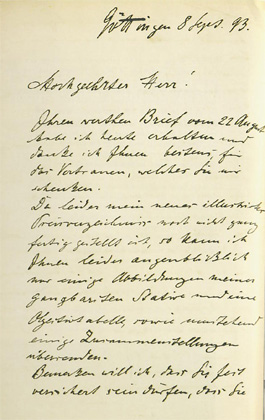 Göttingen 8 Sept. 93.
Hochgeehrter Herr!
Ihren werthen Brief vom 22 August
habe ich heute erhalten und
danke ich Ihnen bestens, für
das Vertrauen, welches Sie mir
schenken.
Da leider mein neues illustrirtes
Preisverzeichniss noch nicht ganz
fertig gestellt ist, so kann ich
Ihnen leider augenblicklich
nur einige Abbildungen meiner
gangbarsten Stative und eine
Objectivtabelle, sowie umstehend
einige Zusammenstellungen
übersenden.
Bemerken will ich, dass Sie fest
versichert sein dürfen, dass Sie